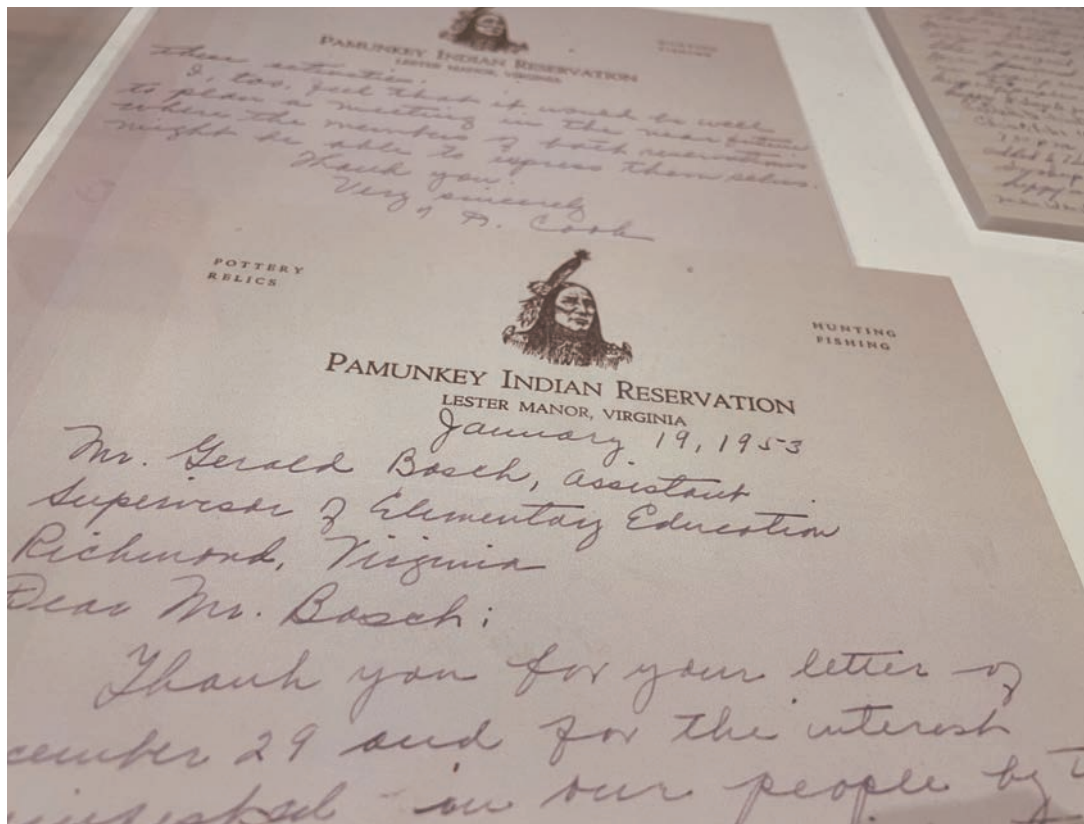 PAMUNKEY INDIAN RESERVATION
LESTER MANOR, VIRGINIA
HUNTING
FISHING
their activities.
I, too, feel that it would be well
to plan a meeting in the near future
where the members of both reservations
might be able to express them selves.
Thank you.
Very sincerely
Cook
POTTERY
RELICS
HUNTING
FISHING
PAMUNKEY INDIAN RESERVATION
LESTER MANOR, VIRGINIA
January 19, 1953
Mr. Gerald Bosch, Assistant
Supervisor of Elementary Education
Richmond, Virginia
Dear Mr. Bosch:
Thank you for your letter of
cember 29 and for the interest
in our people by